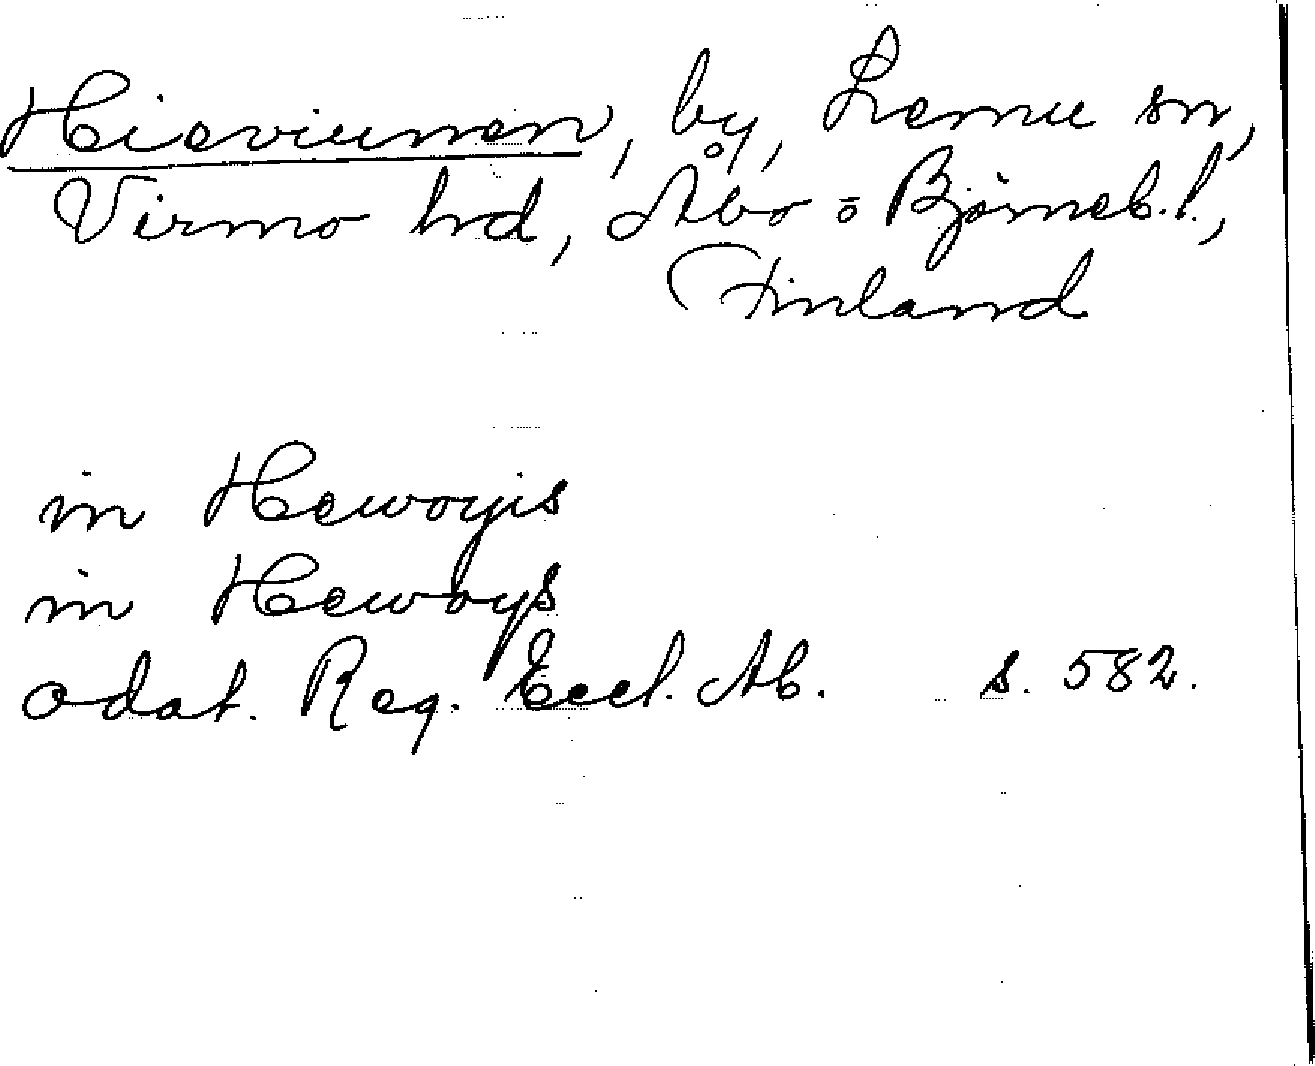 Hieviemen, by, Lemu sn,
Virmo hd, Åbo o Björneb. l.,
Finland
in Hewoyis
in Hewoys
odat. Reg. Eccl. Ab. s. 582.